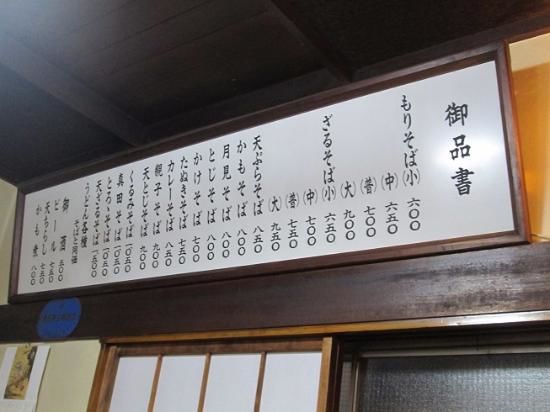 御品書
もりそば(小) 六〇〇
(中) 六五〇
(普) 七〇〇
(大) 九〇〇
ざるそば(小) 六五〇
(中) 七〇〇
(普) 七五〇
(大) 九五〇
天ぷらそば 八五〇
かもそば 八五〇
とじそば 八〇〇
月見そば 八〇〇
かけそば 七〇〇
たぬきそば 七五〇
カレーそば 八五〇
親子そば 九〇〇
天とじそば 九〇〇
くるみそば
真田そば 一〇五〇
とろろそば 一〇五〇
天ざるそば 一五〇〇
うどん各種
そばと同価
御酒 五〇〇
ビール 七五〇
天ちらし 七五〇
かも煮 八〇〇